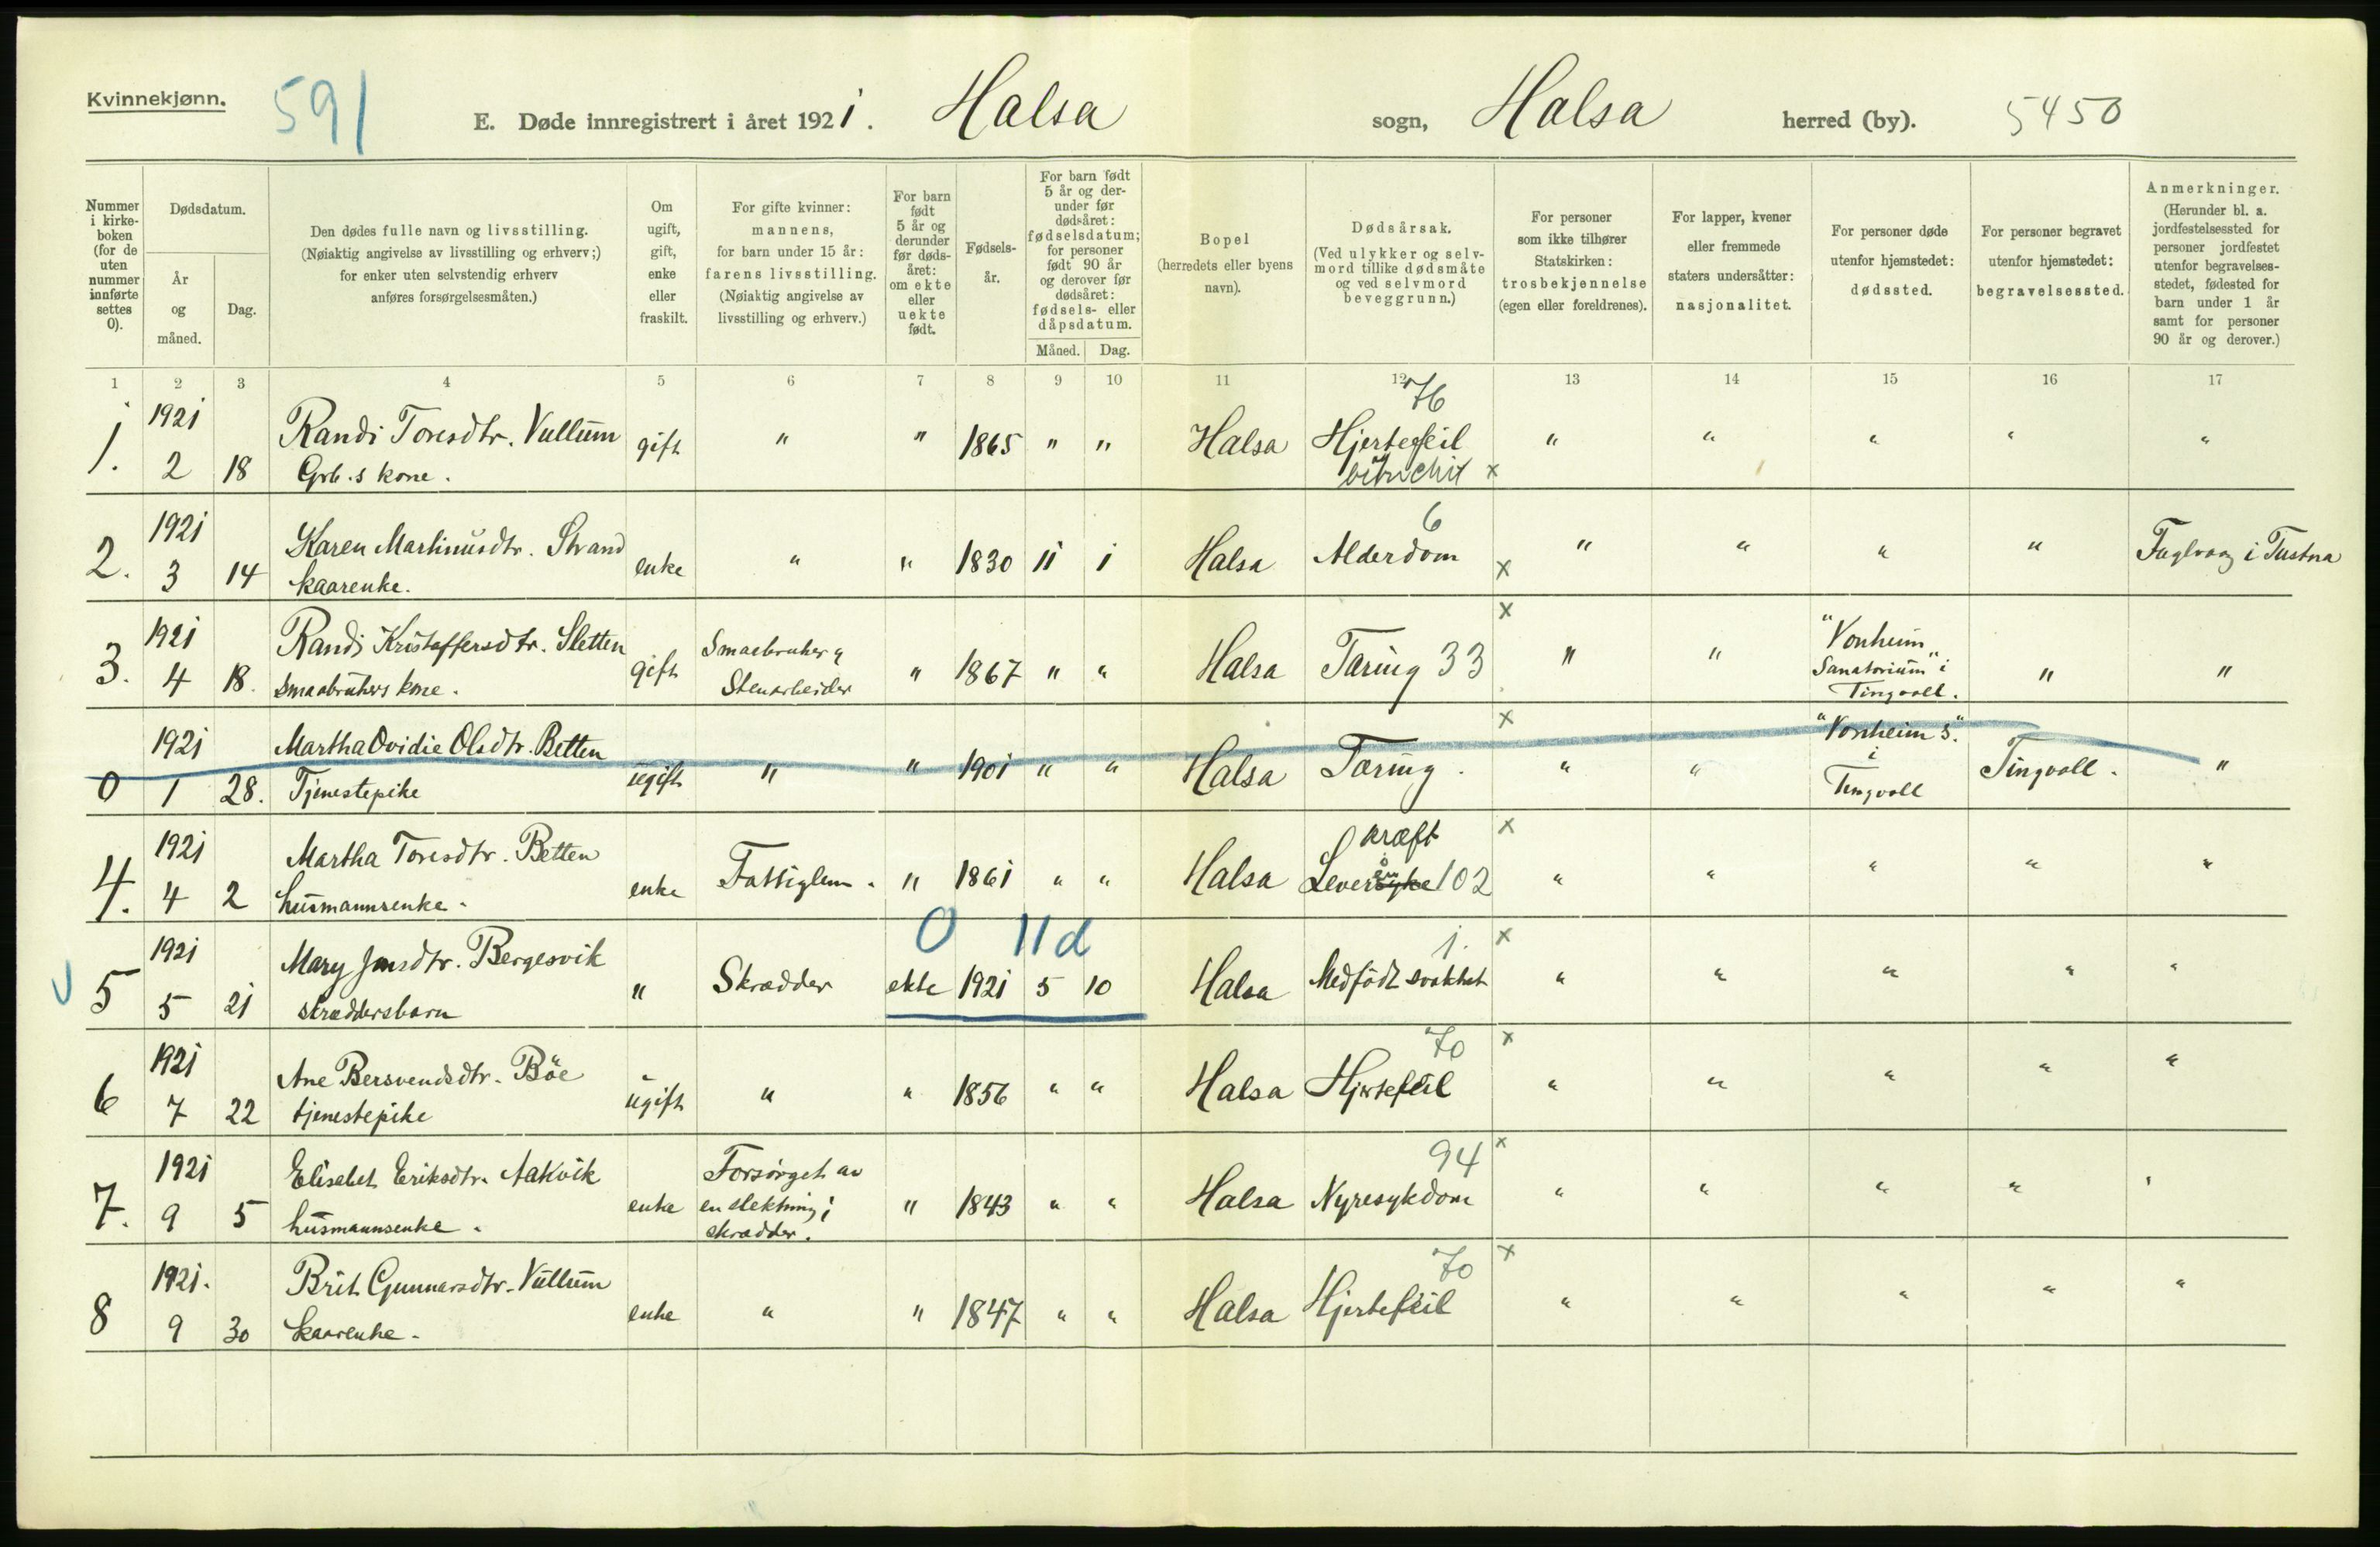 Kvinnekjønn.
591
E. Døde innregistrert i året 1921. Halsa sogn, Halsa herred (by). 5450
Nummer i kirke-boken (for de uten nummer innførte settes 0).
Dødsdatum.
År og måned.
Dag.
Den dødes fulle navn og livsstilling.
(Nøiaktig angivelse av livsstilling og erhverv;)
for enker uten selvstendig erhverv
anføres forsørgelsesmåten.)
Om ugift, gift, enke eller fraskilt.
For gifte kvinner: mannens, for barn under 15 år: farens livsstilling. (Nøiaktig angivelse av livsstilling og erhverv.)
For barn født 5 år og derunder før døds-året: om ekte eller uekte født.
Fødsels-år.
For barn født 5 år og der-under før dødsåret: fødselsdatum; for personer født 90 år og derover før dødsåret: fødsels- eller dåpsdatum.
Måned. Dag.
Bopel (herredets eller byens navn).
Dødsårsak. (Ved ulykker og selv-mord tillike dødsmåte og ved selvmord beveggrunn.)
For personer som ikke tilhører Statskirken: trosbekjennelse (egen eller foreldrenes).
For lapper, kvener eller fremmede staters undersåtter: nasjonalitet.
For personer døde utenfor hjemstedet: dødssted.
For personer begravet utenfor hjemstedet: begravelsessted.
Anmerkninger. (Herunder bl. a. jordfestelsessted for personer jordfestet utenfor begravelses-stedet, fødested for barn under 1 år samt for personer 90 år og derover.)
1 2 3 4 5 6 7 8 9 10 11 12 13 14 15 16 17
76
1921 Randi Toresdtr. Vullum
1. 2 18 Grb.s kone. gift " " 1865 " " Halsa Hjertefeil x " " " " "
6
1921 Karen Martinusdtr. Strand
2. 3 14 kaarenke. enke " " 1830 11 1 Halsa Alderdom x " " " " Fuglvaag i Tustna
1921 Randi Kristoffersdtr. Sletten Smaabruker &
3. 4 18. smaabrukers kone. gift Stenarbeider " 1867 " " Halsa Tæring 33 x " " "Vonheim Sanatorium" i Tingvoll. " "
1921 Martha Ovidie Olsdtr. Betten
0 1 28. Tjenestepike ugift " " 1901 " " Halsa Tæring. x " " "Vonheim S." i Tingvoll Tingvoll. "
1921 Martha Toresdtr. Betten kræft
4. 4 2 husmannsenke. enke Fattiglem. " 1861 " " Halsa Leversyke 102 x " " " " "
0 11 d
1.
1921 Mary Jensdtr. Bergesvik
5 5 21 skræddersbarn " Skrædder ekte 1921 5 10 Halsa Medfødt svakhet x " " " " "
70
1921 Ane Bersvendsdtr. Böe
6 7 22 tjenestepike ugift " " 1856 " " Halsa Hjertefeil x " " " " "
94
1921 Elisabet Eriksdtr. Aakvik Forsörget av
7. 9 5 husmannsenke. enke en slektning i skrædder. " 1843 " " Halsa Nyresykdom x " " " " "
70
1921. Brit Gunnarsdtr. Vullum
8 9 30 kaarenke. enke " " 1847 " " Halsa Hjertefeil x " " " " "